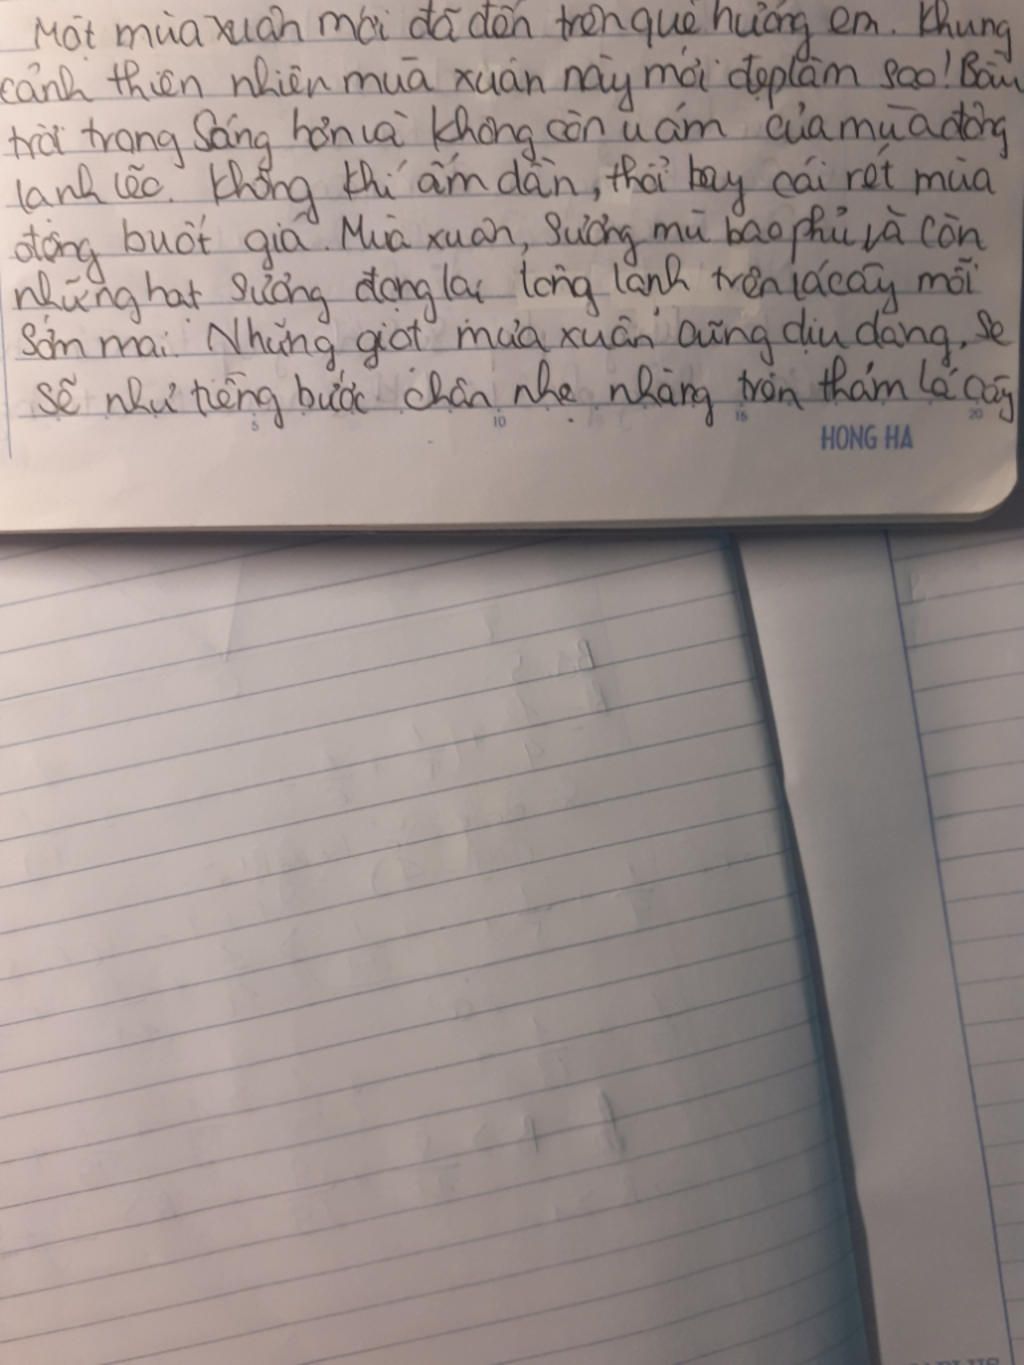 Một mùa xuân mới đã đến trên quê hương em. Khung
cảnh thiên nhiên mùa xuân này mới đẹp làm sao! Bầu
trời trong sáng hơn và không còn u ám của mùa đông
lạnh lẽo. Không khí ấm dần, thổi bay cái rét mùa
đông buốt giá. Mùa xuân, sương mù bao phủ và còn
những hạt sương đọng lại long lanh trên lá cây mỗi
sớm mai. Những giọt mưa xuân cũng dịu dàng, se
sẽ như tiếng bước chân nhẹ nhàng trên thảm lá cây
5 10 15 20
HONG HA